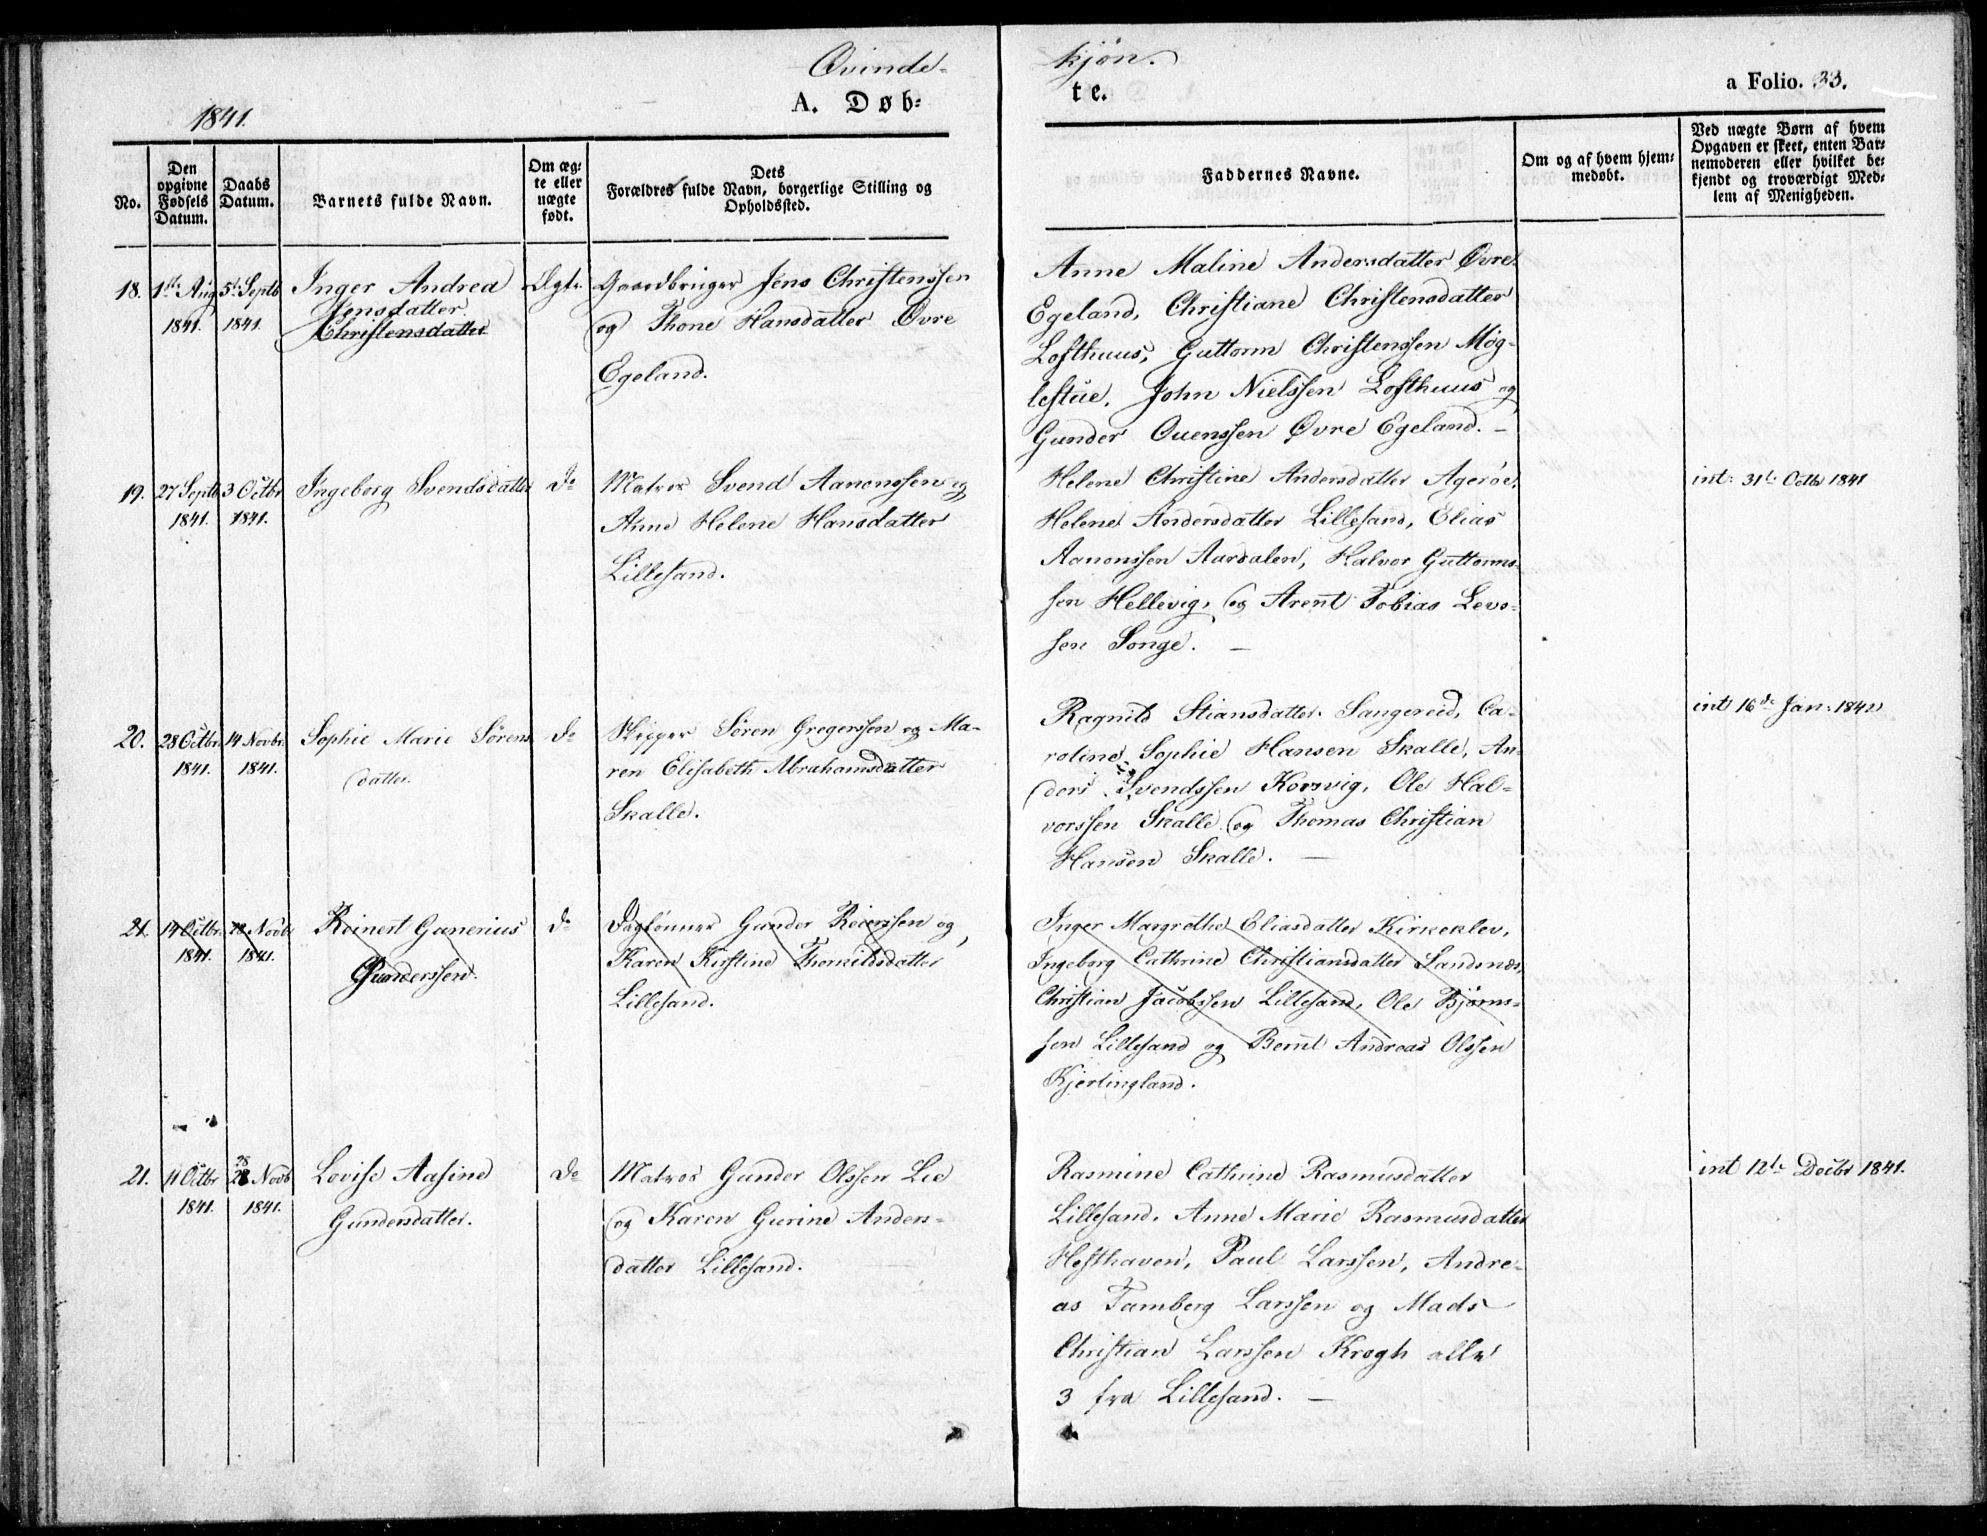 Qvinde-
kjøn.
1841.
A. Døb-
te.
a Folio. 33.
No.
Den opgivne Fødsels Datum.
Daabs Datum.
Barnets fulde Navn.
Om ægte eller uægte født.
Dets Forældres fulde Navn, borgerlige Stilling og Opholdssted.
Faddernes Navne.
Om og af hvem hjemmedøbt.
Ved uægte Børn af hvem Opgaven er skeet, enten Barnemoderen eller hvilket bekjendt og troværdigt Medlem af Menigheden.
18.
1ste Aug 1841.
5te Septb 1841.
Inger Andrea
Jensdatter.
Christensdatter
Ægte.
Gaardbruger Jens Christenssen
og Thone Hansdatter Øvre
Egeland.
Anne Maline Andersdatter Øvre
Egeland, Christiane Christensdatter
Lofthuus, Guttorm Christenssen Møg-
lestue, John Nielssen Lofthuus og
Gunder Ouenssen Øvre Egeland. –
19.
27 Septb 1841.
3 Octbr 1841.
Ingeborg Svendsdatter
do
Matros Svend Aanonssen og
Anne Helene Hansdatter
Lillesand.
Helene Christine Andersdatter Agerøe,
Helene Andersdatter Lillesand, Elias
Aanonssen Aardalen, Halvor Guttorms-
sen Hellevig, og Arent Tobias Levo-
sen Songe. –
int: 31te Octbr 1841
20.
28 Octbr. 1841.
14 Novbr. 1841.
Sophie Marie Sørens
datter.
do
Skipper Søren Gregerssen og Ma-
ren Elisabeth Abrahamsdatter
Skalle.
Ragnild Stiansdatter Sangereid, Ca-
roline Sophie Hansen Skalle, An-
ders Svendssen Korsvig, Ole Hal-
vorssen Skalle og Thomas Christian
Hansen Skalle. –
int 16de Jan: 1842
21.
14 Octbr. 1841.
28 Novb. 1841.
Reinert Gunerius
Gunderssen.
do
Daglønner Gunder Reierssen og
Karen Kirstine Thorkildsdatter
Lillesand.
Inger Margrethe Eliasdatter Kirkeklev,
Ingeborg Cathrine Christiansdatter Sandsnes,
Christian Jacobssen Lillesand, Ole Bjørns-
sen Lillesand og Bernt Andreas Olssen
Kjerlingland.
21.
11 Octbr 1841.
28
28 Novb 1841.
Lovise Aasine
Gundersdatter.
do
Matros Gunder Olssen Lie
og Karen Gurine Anders-
datter Lillesand.
Rasmine Cathrine Rasmusdatter
Lillesand, Anne Marie Rasmusdatter
Hesthaven, Paul Larssen, Andre-
as Tamberg Larssen og Mads
Christian Larssen Krogh alle
3 fra Lillesand. –
int 12te Decbr 1841.